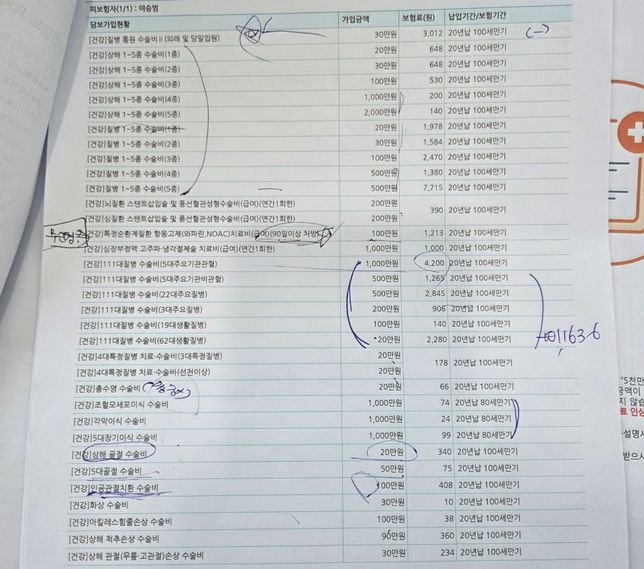 피보험자(1/1) : 이승범
담보가입현황 가입금액 보험료(원) 납입기간/보험기간
[건강]질병 통원 수술비Ⅱ(외래 및 당일입원) 30만원 3,012 20년납 100세만기 (-)
[건강]상해 1~5종 수술비(1종) 20만원 648 20년납 100세만기
[건강]상해 1~5종 수술비(2종) 30만원 648 20년납 100세만기
[건강]상해 1~5종 수술비(3종) 100만원 530 20년납 100세만기
[건강]상해 1~5종 수술비(4종) 1,000만원 200 20년납 100세만기
[건강]상해 1~5종 수술비(5종) 2,000만원 140 20년납 100세만기
[건강]질병 1~5종 수술비(1종) 20만원 1,978 20년납 100세만기
[건강]질병 1~5종 수술비(2종) 30만원 1,584 20년납 100세만기
[건강]질병 1~5종 수술비(3종) 100만원 2,470 20년납 100세만기
[건강]질병 1~5종 수술비(4종) 500만원 1,380 20년납 100세만기
[건강]질병 1~5종 수술비(5종) 500만원 7,715 20년납 100세만기
[건강]뇌질환 스텐트삽입술 및 풍선혈관성형수술비(급여)(연간1회한) 200만원
390 20년납 100세만기
[건강]심질환 스텐트삽입술 및 풍선혈관성형수술비(급여)(연간1회한) 200만원
[건강]특정순환계질환 항응고제(와파린,NOAC)치료비(급여)(90일이상 처방) 100만원 1,213 20년납 100세만기
[건강]심장부정맥 고주파·냉각절제술 치료비(급여)(연간1회한) 1,000만원 1,000 20년납 100세만기
[건강]111대질병 수술비(5대주요기관관혈) 1,000만원 4,200 20년납 100세만기
[건강]111대질병 수술비(5대주요기관비관혈) 500만원 1,265 20년납 100세만기
[건강]111대질병 수술비(22대주요질병) 500만원 2,845 20년납 100세만기
[건강]111대질병 수술비(3대주요질병) 200만원 906 20년납 100세만기
[건강]111대질병 수술비(19대생활질병) 100만원 140 20년납 100세만기
[건강]111대질병 수술비(62대생활질병) 20만원 2,280 20년납 100세만기
[건강]4대특정질병 치료·수술비(3대특정질병) 20만원
178 20년납 100세만기
[건강]4대특정질병 치료·수술비(선천이상) 20만원
[건강]충수염 수술비 20만원 66 20년납 100세만기
[건강]조혈모세포이식 수술비 1,000만원 74 20년납 80세만기
[건강]각막이식 수술비 1,000만원 24 20년납 80세만기
[건강]5대장기이식 수술비 1,000만원 99 20년납 80세만기
[건강]상해 골절 수술비 20만원 340 20년납 100세만기
[건강]5대골절 수술비 50만원 75 20년납 100세만기
[건강]인공관절치환 수술비 100만원 408 20년납 100세만기
[건강]화상 수술비 30만원 10 20년납 100세만기
[건강]아킬레스힘줄손상 수술비 100만원 38 20년납 100세만기
[건강]상해 척추손상 수술비 90만원 360 20년납 100세만기
[건강]상해 관절(무릎·고관절)손상 수술비 30만원 234 20년납 100세만기
"5천만
금액이
지 않습
료 인상
설명서
받으시